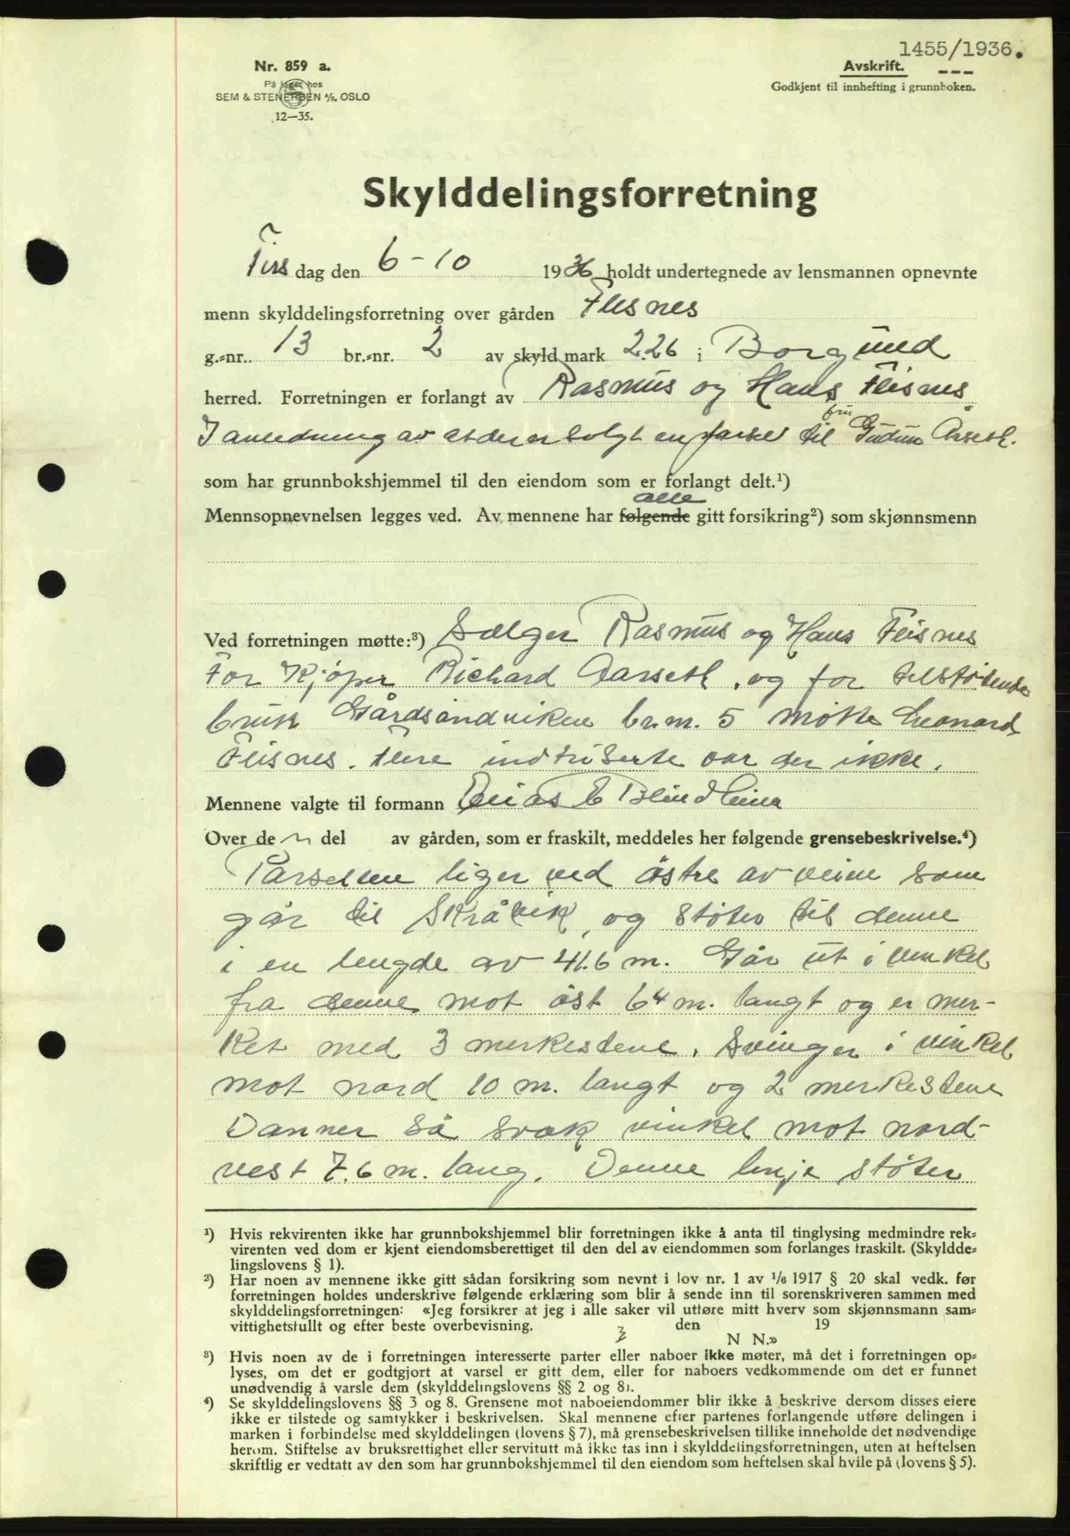 1455/1936.
Nr. 859 a.
På lager hos
SEM & STENERSEN A/S, OSLO
12—35.
Avskrift.
Godkjent til innhefting i grunnboken.
Skylddelingsforretning
Tirs dag den 6-10 1936 holdt undertegnede av lensmannen opnevnte
menn skylddelingsforretning over gården Fleisnes
g.-nr. 13 br.-nr. 2 av skyld mark 2.26 i Borgund
herred. Forretningen er forlangt av Rasmus og Hans Fleisnes
I anledning av at der er solgt en parsel til fru Gudrun Årseth.
som har grunnbokshjemmel til den eiendom som er forlangt delt.¹)
Mennsopnevnelsen legges ved. Av mennene har følgende alle gitt forsikring²) som skjønnsmenn
Ved forretningen møtte:³) Sælger Rasmus og Hans Fleisnes
For Kjøper Richard Aarseth, og for tilstøtende
bruk Gårdsandviken br.nr. 5 møtte Leonard
Fleisnes. Flere indtriserte var der ikke.
Mennene valgte til formann Elias E Blindheim
Over de n del av gården, som er fraskilt, meddeles her følgende grensebeskrivelse.⁴)
Parsellen liger ved østre av veien som
går til Skråvik, og støter til denne
i en lengde av 41.6 m. Går ut i vinkel
fra denne mot øst 64 m. langt og er mer-
ket med 3 merkestene. Svinger i vinkel
mot nord 10 m. langt og 2 merkestene
Danner så svak vinkel mot nord-
vest 7.6 m. lang. Denne linje støter
¹) Hvis rekvirenten ikke har grunnbokshjemmel blir forretningen ikke å anta til tinglysing medmindre rek-
virenten ved dom er kjent eiendomsberettiget til den del av eiendommen som forlanges fraskilt. (Skyldde-
lingslovens § 1).
²) Har noen av mennene ikke gitt sådan forsikring som nevnt i lov nr. 1 av 1/6 1917 § 20 skal vedk. før
forretningen holdes underskrive følgende erklæring som blir å sende inn til sorenskriveren sammen med
skylddelingsforretningen: «Jeg forsikrer at jeg i alle saker vil utføre mitt hverv som skjønnsmann sam-
vittighetsfullt og efter beste overbevisning.
den 19
N N.»
³) Hvis noen av de i forretningen interesserte parter eller naboer ikke møter, må det i forretningen op-
lyses, om det er godtgjort at varsel er gitt dem, eller for naboers vedkommende om det er funnet
unødvendig å varsle dem (skylddelingslovens §§ 2 og 8).
⁴) Se skylddelingslovens §§ 3 og 8. Grensene mot naboeiendommer blir ikke å beskrive dersom disses eiere
ikke er tilstede og samtykker i beskrivelsen. Skal mennene efter partenes forlangende utføre delingen i
marken i forbindelse med skylddelingen (lovens § 7), må grensebeskrivelsen tillike inneholde det nødvendige
herom. Stiftelse av bruksrettighet eller servitutt må ikke tas inn i skylddelingsforretningen, uten at heftelsen
skriftlig er vedtatt av den som har grunnbokshjemmel til den eiendom som heftelsen skal hvile på (lovens § 5).